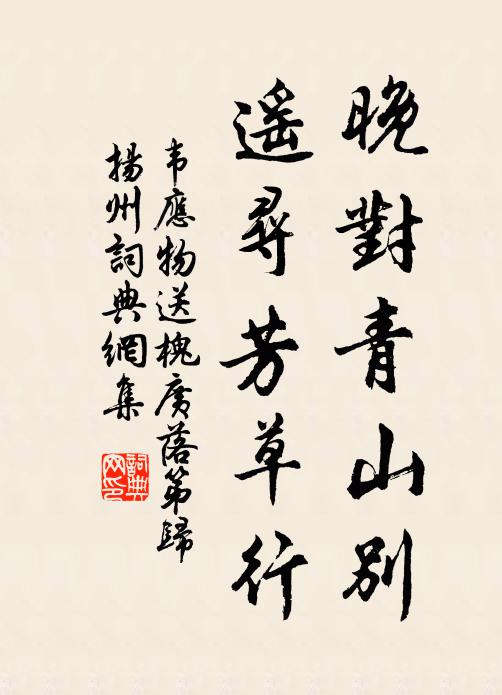 晚對青山別
遙尋芳草行
韦應物送槐廣落第歸
揚州詞典網集
詞典网印